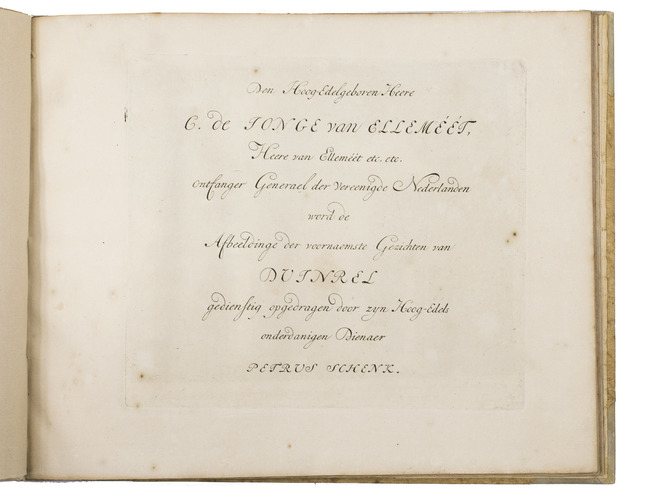 Den Hoog-Edelgeboren Heere
C. de IONGE van ELLEMÉÉT,
Heere van Elleméét etc. etc.
Ontfanger Generael der Vereenigde Nederlanden
word de
Afbeeldinge der voornaemste Gezichten van
DUINREL
gedienstig opgedragen door zyn Hoog-Edels
onderdanigen Dienaer
PETRUS SCHENK.